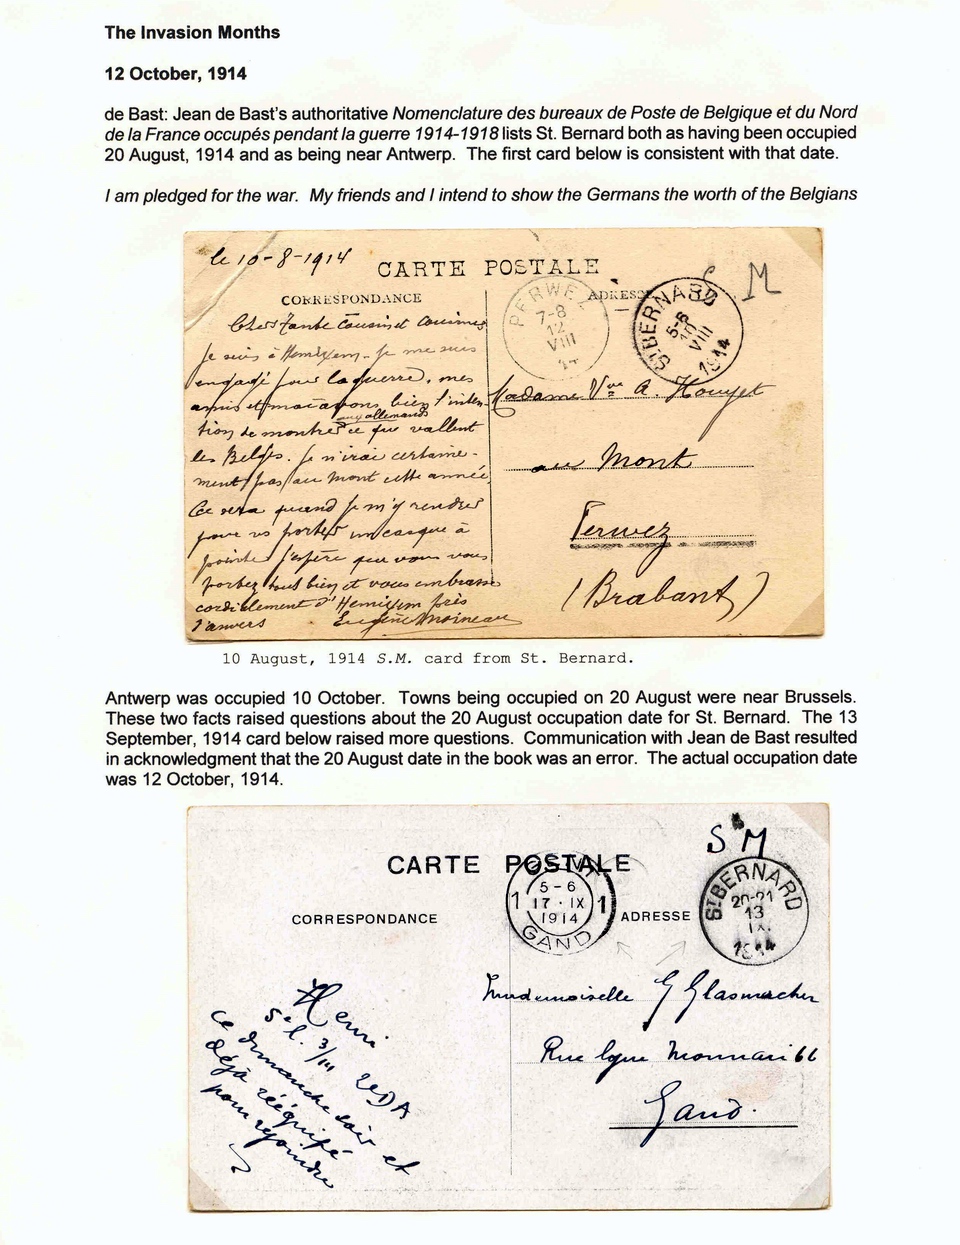 The Invasion Months
12 October, 1914
de Bast: Jean de Bast's authoritative Nomenclature des bureaux de Poste de Belgique et du Nord
de la France occupés pendant la guerre 1914-1918 lists St. Bernard both as having been occupied
20 August, 1914 and as being near Antwerp. The first card below is consistent with that date.
I am pledged for the war. My friends and I intend to show the Germans the worth of the Belgians
le 10-8-1914
CARTE POSTALE
CORRESPONDANCE
ADRESSE
PERWEZ
7-8
12
VIII
14
ST BERNARD
5-6
10
VIII
1914
S M
Chers Tante Cousin et Cousines
Je suis à Hemixem. Je me suis
engagé pour la guerre, mes
amis et moi avons bien l'inten-
tion de montrer aux allemands ce que vallent
les Belges. Je n'irai certaine-
ment pas au Mont cette année
Ce sera quand je m'y rendrai
pour vs porter un casque à
pointe. J'espère que vous vous
portez tout bien et vous embrasse
cordialement d'Hemixem près
d'anvers Eugène Moineau
Madame Vve A. Houyet
au Mont
Perwez
(Brabant)
10 August, 1914 S.M. card from St. Bernard.
Antwerp was occupied 10 October. Towns being occupied on 20 August were near Brussels.
These two facts raised questions about the 20 August occupation date for St. Bernard. The 13
September, 1914 card below raised more questions. Communication with Jean de Bast resulted
in acknowledgment that the 20 August date in the book was an error. The actual occupation date
was 12 October, 1914.
S M
CARTE POSTALE
CORRESPONDANCE
ADRESSE
1 5-6 1
17 · IX
1914
GAND
ST BERNARD
20-21
13
IX
1914
Henri
3/III
ce dimanche soir et
déjà rééquipé
pour rejoindre
Mademoiselle G Glasmacher
Rue 66
Gand.